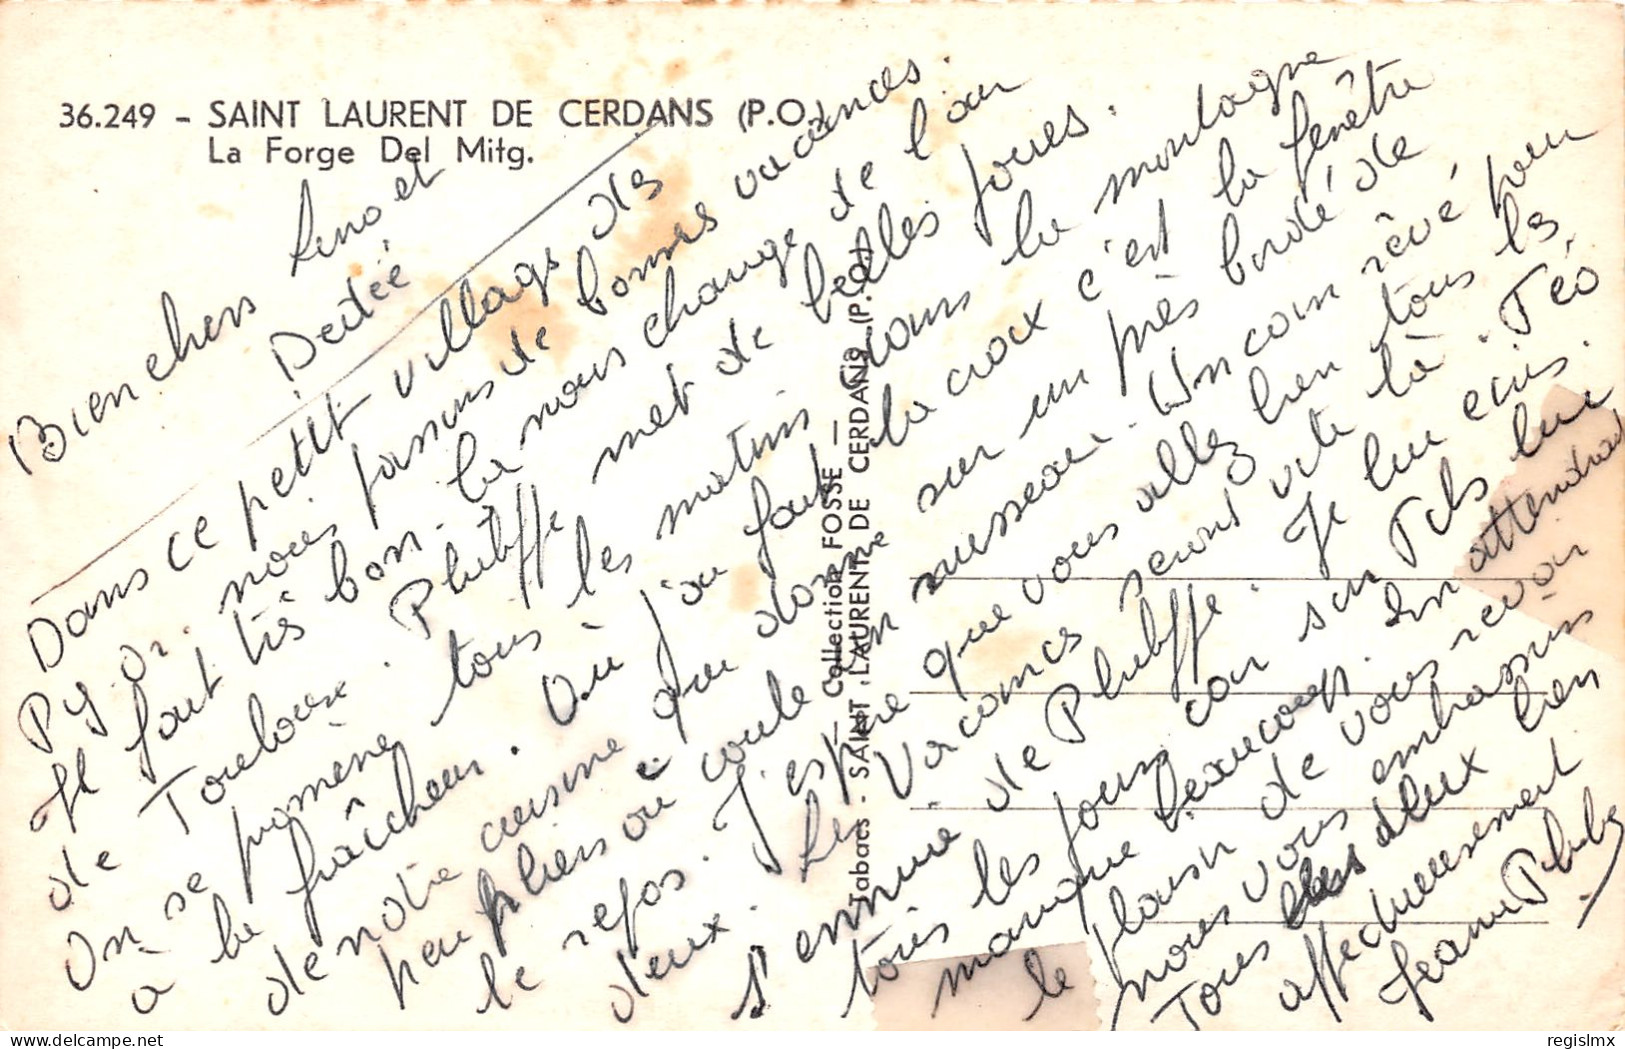 36.249 - SAINT LAURENT DE CERDANS (P.O.)
La Forge Del Mitg.
Bien chers Lino et
Dédée
Dans ce petit village des
Py. Or. nous passons de bonnes vacances.
Il fait très bon. Ça nous change de l'air
de Toulouse. Philippe met de belles joues.
On se promène tous les matins dans la montagne
a la fraîcheur. Où j'ai fait la croix c'est la fenêtre
de notre cuisine qui donne sur un près bordé de
peupliers où coule un ruisseau. Un coin rêvé pour
le repos. J'espère que vous allez bien tous les
deux. Les vacances seront vite là. Téo
s'ennuie de Philippe. Je lui écris
tous les jours car son Fils lui
manque beaucoup. En attendant
le plaisir de vous revoir
nous vous embrassons
Tous les deux bien
affectueusement
Jeanne Philippe
Tabacs - SAINT LAURENT DE CERDANS (P.O.)
— Collection FOSSE —
regislmx